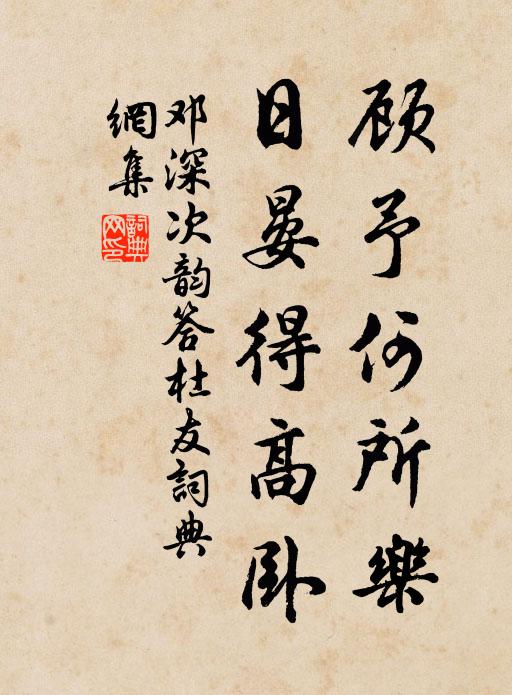 顾予何所樂
日晏得高卧
邓深次韵答杜友詞典
網集
詞典网印